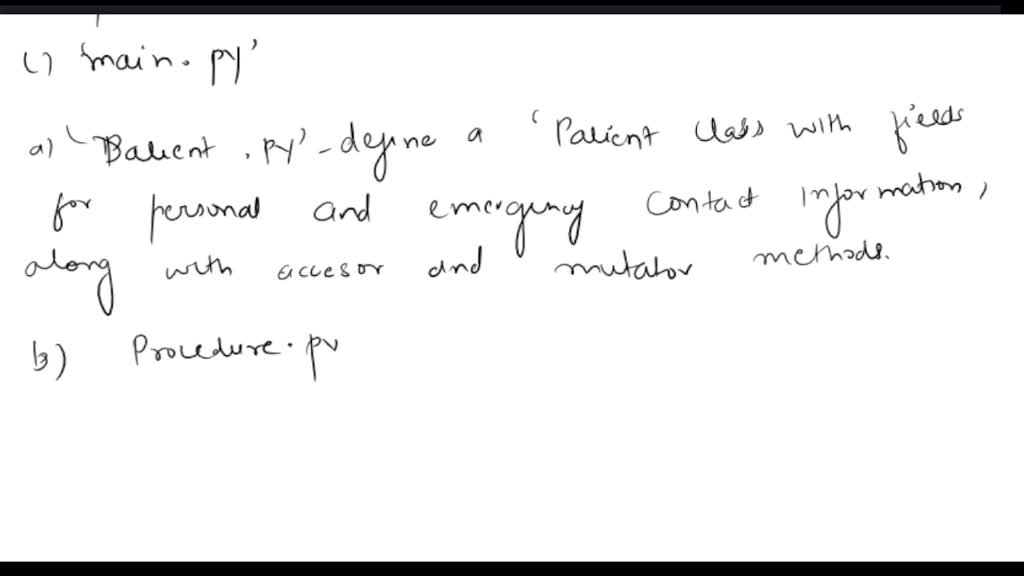 c) 'main.py'
a) 'Patient.py' - define a 'Patient class with fields
for personal and emergency contact information,
along with accesor and mutator methods.
b) Procedure.py